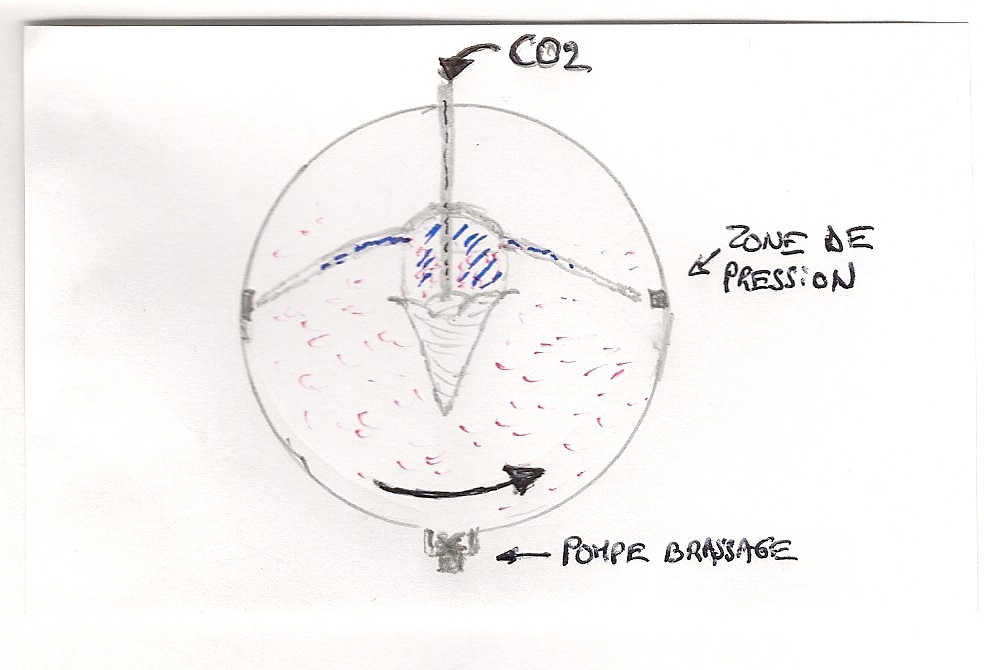 CO2
ZONE DE
PRESSION
POMPE BRASSAGE